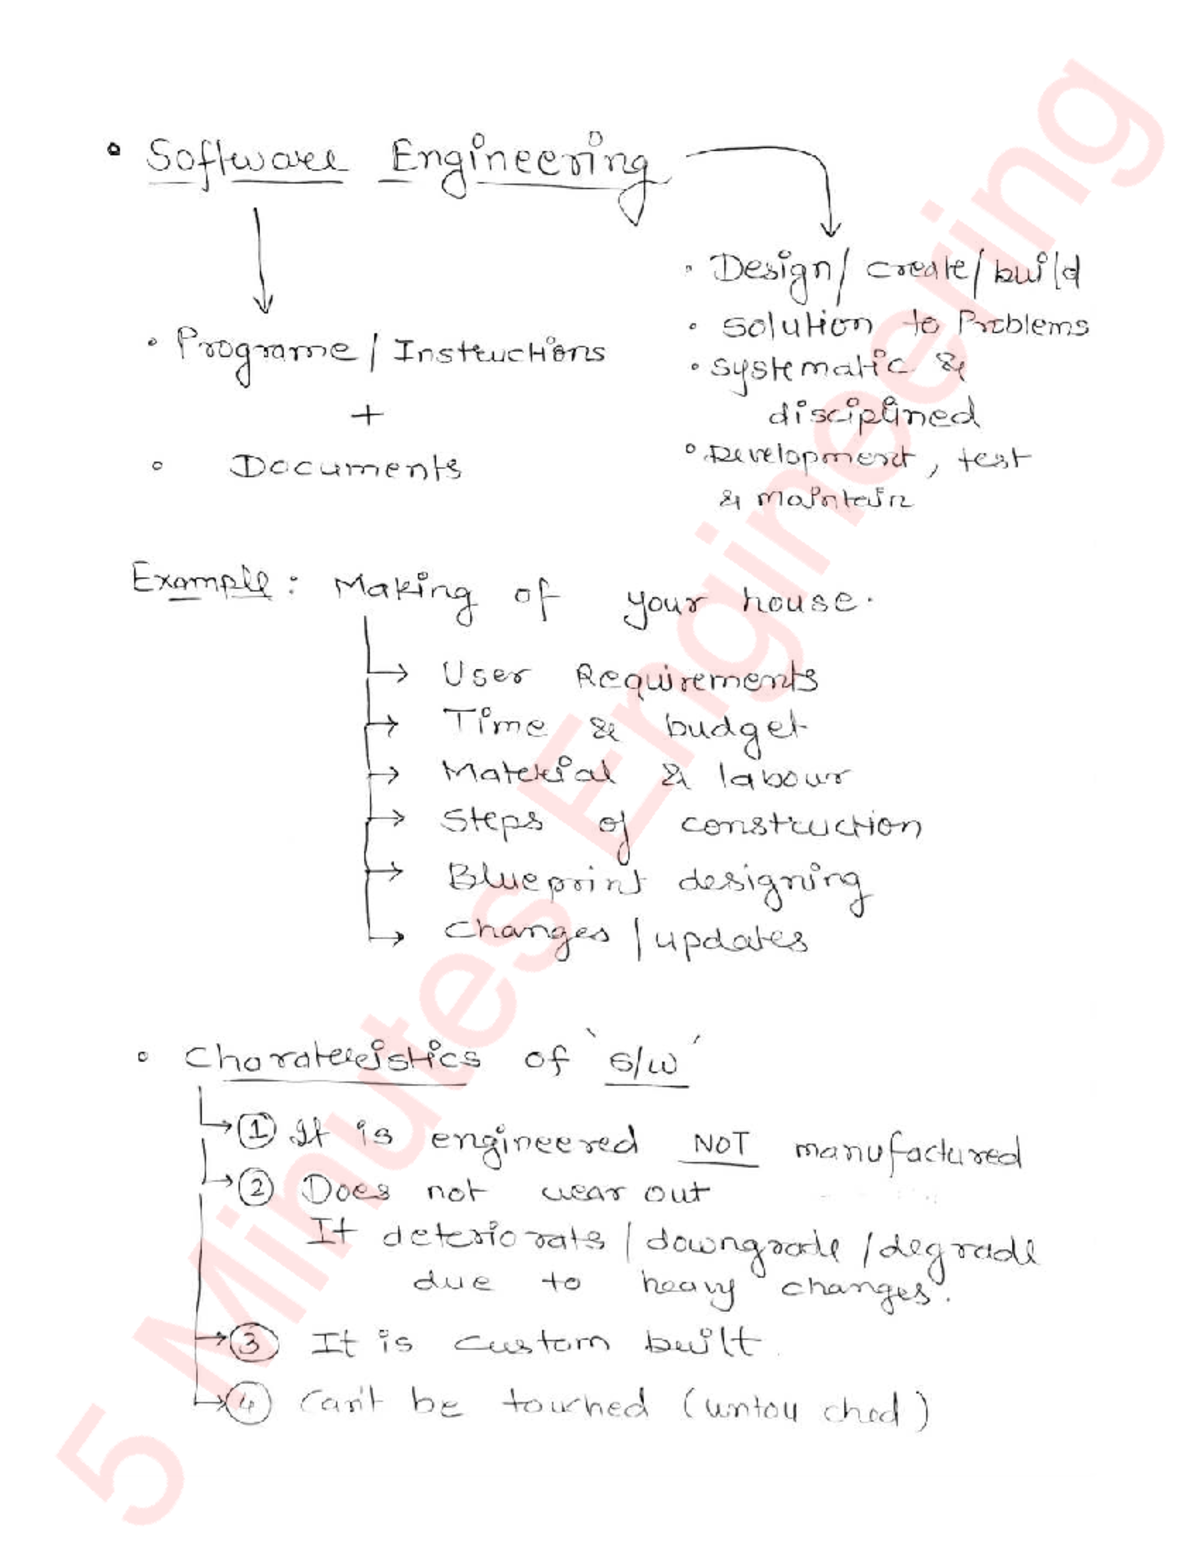 Software Engineering
• Programe / Instructions
+
• Documents
• Design / create / build
• Solution to Problems
• systematic &
disciplined
• Development, test
& maintain
Example : Making of your house.
→ User Requirements
→ Time & budget
→ Material & labour
→ Steps of construction
→ Blueprint designing
→ changes / updates
• Charateristics of 's/w'
→ ① It is engineered NOT manufactured
→ ② Does not wear out
It deteriorats / downgrade / degrade
due to heavy changes.
→ ③ It is custom built.
→ ④ Can't be touched (untouched)
5 Minutes Engineering